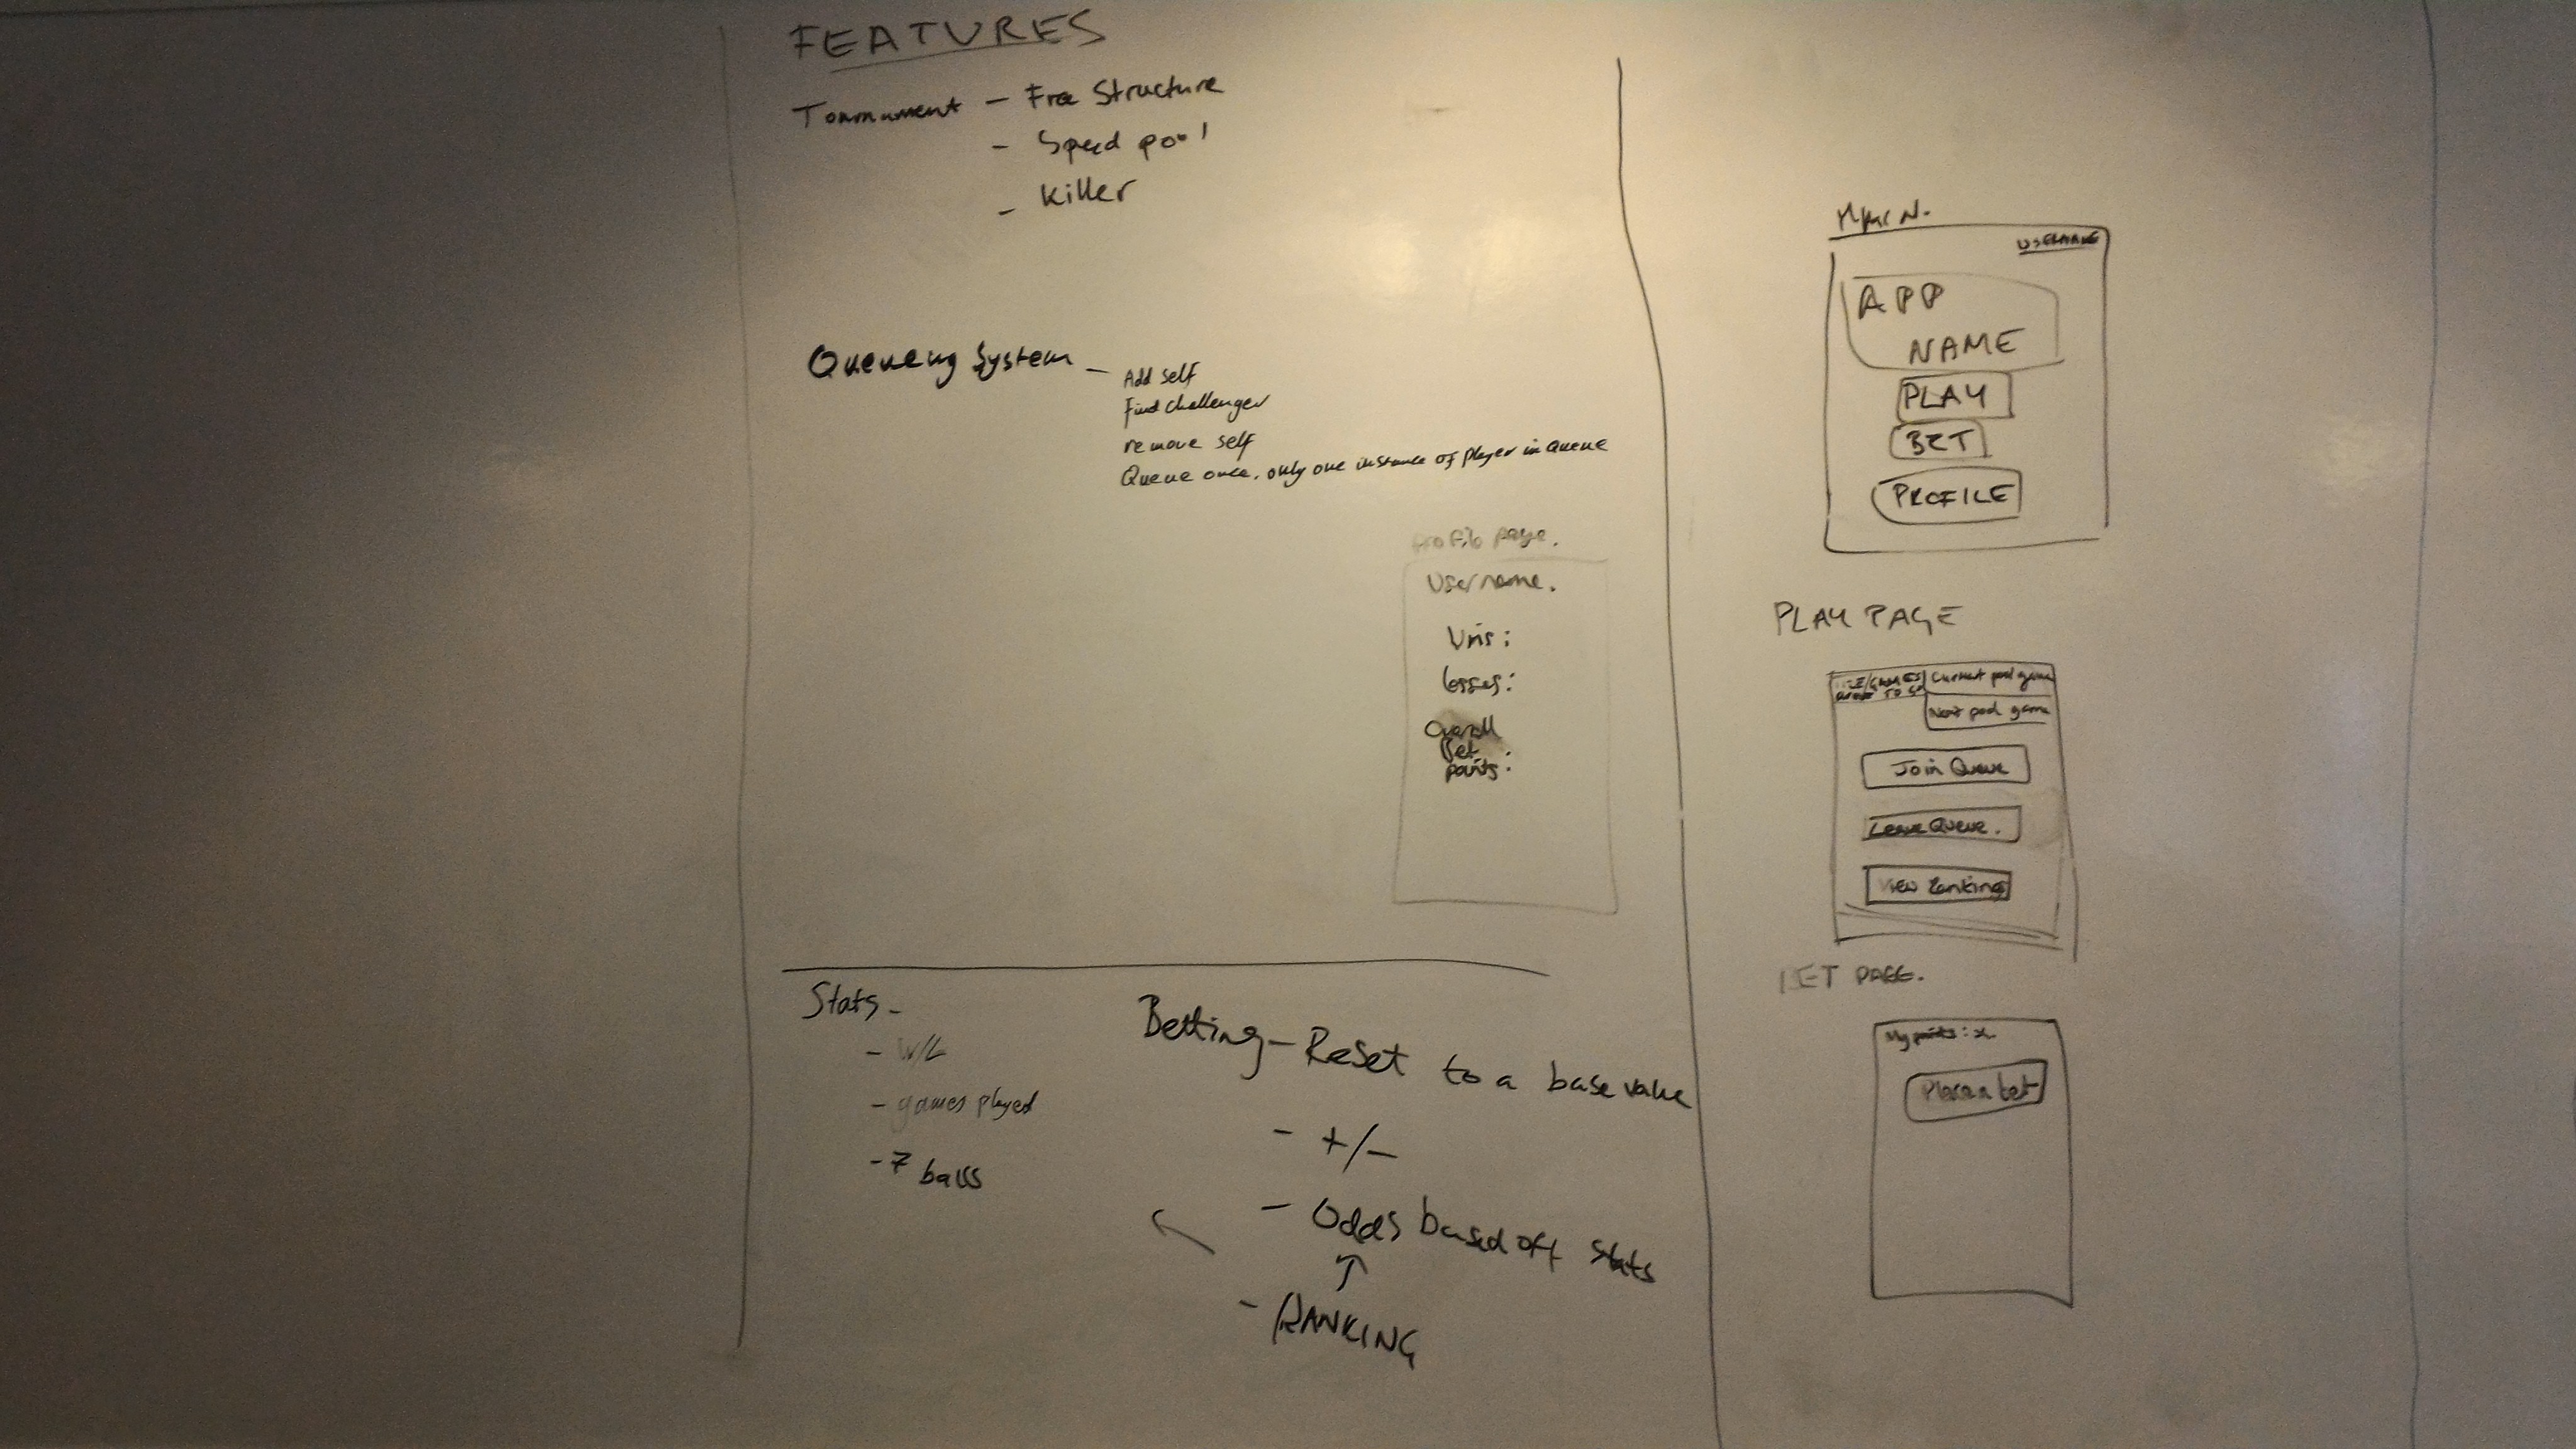 FEATURES
Tournament - Free Structure
- Speed pool
- Killer
Queueing System -
Add self
Find challenger
remove self
Queue once, only one instance of player in Queue
Profile page.
Username.
Wins:
Losses:
Overall
Bet
points:
Stats -
- W/L
- games played
- 7 balls
Betting - Reset to a base value
- +/-
- Odds based off stats
- RANKING
MAIN.
USERNAME
APP
NAME
PLAY
BET
PROFILE
PLAY PAGE
/GAMES
TO GO
Current pool game
Next pool game
Join Queue
Leave Queue.
View Rankings
BET PAGE.
My points: x
Place a bet